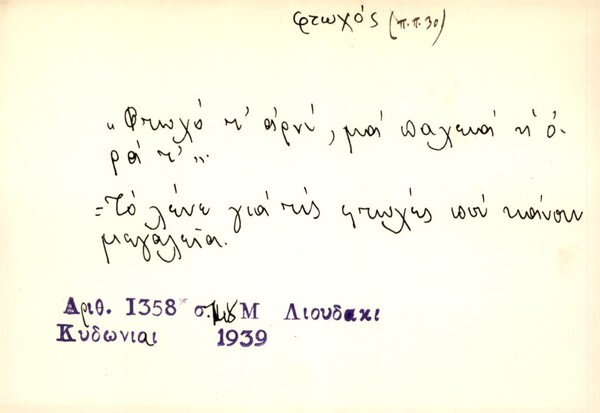 φτωχός (π.π. 30)
"Φτωχό τ' αρνί, μα παχειά η ό-
ρά τ'".
=Τό λένε γιά τίς φτωχές πού κάνουν
μεγαλεία.
Αριθ. 1358 σ. Μ Λιουδακι
Κυδωνιαι 1939